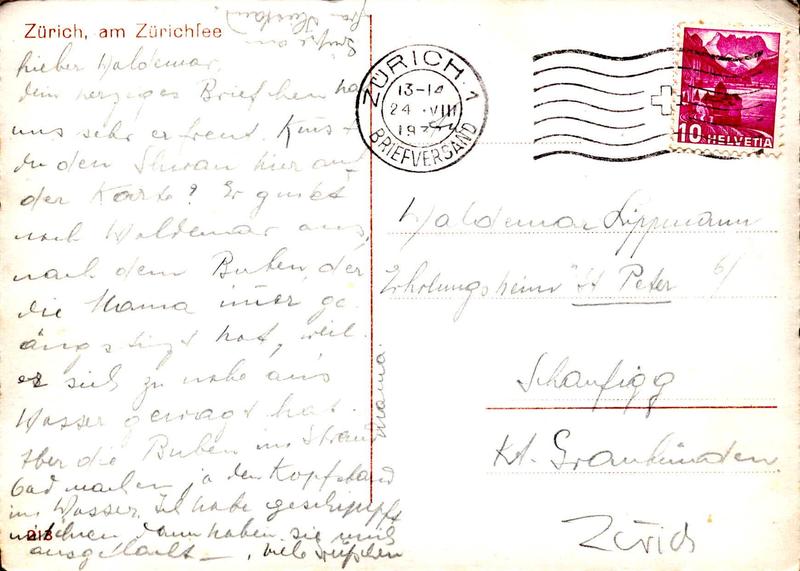 Zürich, am Zürichsee
Lieber Waldemar,
dein herziges Briefchen hat
uns sehr erfreut. Kuns
du den Schwan hier auf
der Karte? Er guckt
nach Waldemar aus,
nach dem Buben, der
die Mama immer ge
ängstigt hat, weil
er sich zu nahe ans
Wasser gewagt hat.
Aber die Buben im Strand
bad machen ja den Kopfstand
im Wasser. Ich habe geschimpft
mit ihnen, dann haben sie mich
ausgelacht —, viele
Mama.
213
ZÜRICH 1
13-14
24. VIII
BRIEFVERSAND
10 HELVETIA
Waldemar Lippmann
Erholungsheim "St Peter" b/
Schanfigg
Kt. Graubünden
Zürich